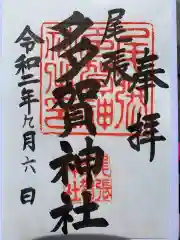 奉拝
尾張
多賀神社
令和二年九月六日